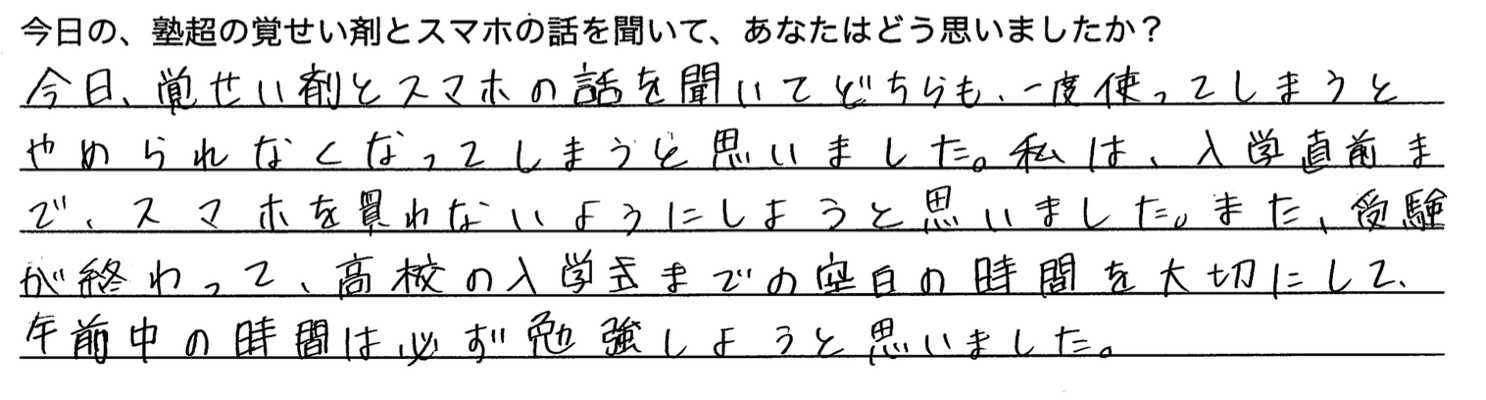 今日の、塾超の覚せい剤とスマホの話を聞いて、あなたはどう思いましたか？
今日、覚せい剤とスマホの話を聞いてどちらも、一度使ってしまうと
やめられなくなってしまうと思いました。私は、入学直前ま
で、スマホを買わないようにしようと思いました。また、受験
が終わって、高校の入学式までの空白の時間を大切にして、
午前中の時間は必ず勉強しようと思いました。